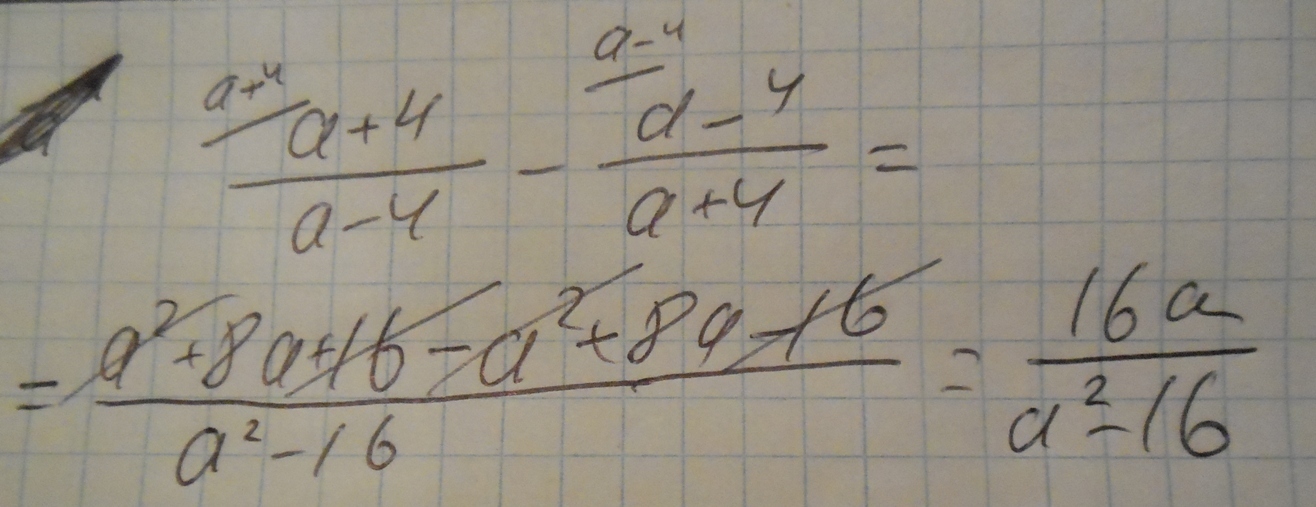 a+4 a-4
a+4 / a-4 - a-4 / a+4 =
= a²+8a+16-a²+8a-16 / a²-16 = 16a / a²-16